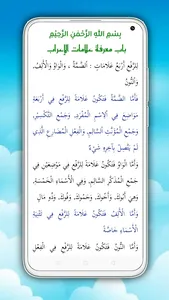 بِسْمِ اللَّهِ الرَّحْمَنِ الرَّحِيْمِ
باب معرفة علامات الإعراب
لِلرَّفْعِ أَرْبَعُ عَلَامَاتٍ: الضَّمَّةُ، وَالْوَاوُ وَالْأَلِفُ،
وَالنُّوْنُ
فَأَمَّا الضَّمَّةُ فَتَكُوْنُ عَلَامَةً لِلرَّفْعِ فِي أَرْبَعَةِ
مَوَاضِعَ فِي الْاِسْمِ الْمُفْرَدِ، وَجَمْعِ التَّكْسِيْرِ،
وَجَمْعِ الْمُؤَنَّثِ السَّالِمِ، وَالْفِعْلِ الْمُضَارِعِ الَّذِي
لَمْ يَتَّصِلْ بِآخِرِهِ شَيْءٌ
وَأَمَّا الْوَاوُ فَتَكُوْنُ عَلَامَةً لِلرَّفْعِ فِي مَوْضِعَيْنِ فِي
جَمْعِ الْمُذَكَّرِ السَّالِمِ، وَفِي الْأَسْمَاءِ الْخَمْسَةِ،
وَهِيَ أَبُوْكَ، وَأَخُوْكَ، وَحَمُوْكَ، وَفُوْكَ، وَذُوْ مَالٍ
وَأَمَّا الْأَلِفُ فَتَكُوْنُ عَلَامَةً لِلرَّفْعِ فِي تَثْنِيَةِ
الْأَسْمَاءِ خَاصَّةً
وَأَمَّا النُّوْنُ فَتَكُوْنُ عَلَامَةً لِلرَّفْعِ فِي الْفِعْلِ